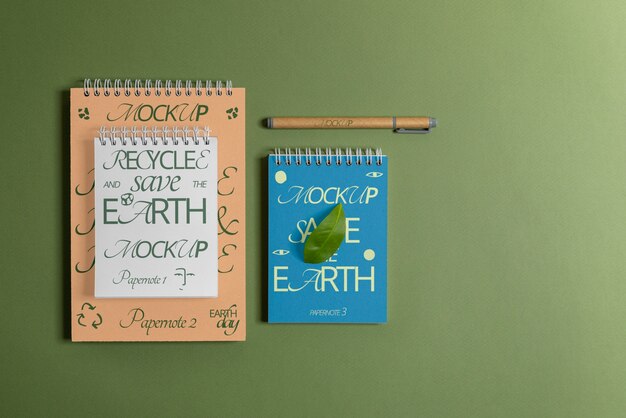 MOCKUP
RECYCLE
AND save THE
EARTH
MOCKUP
Papernote 1
Papernote 2
EARTH
day
MOCKUP
MOCKUP
EARTH
PAPERNOTE 3